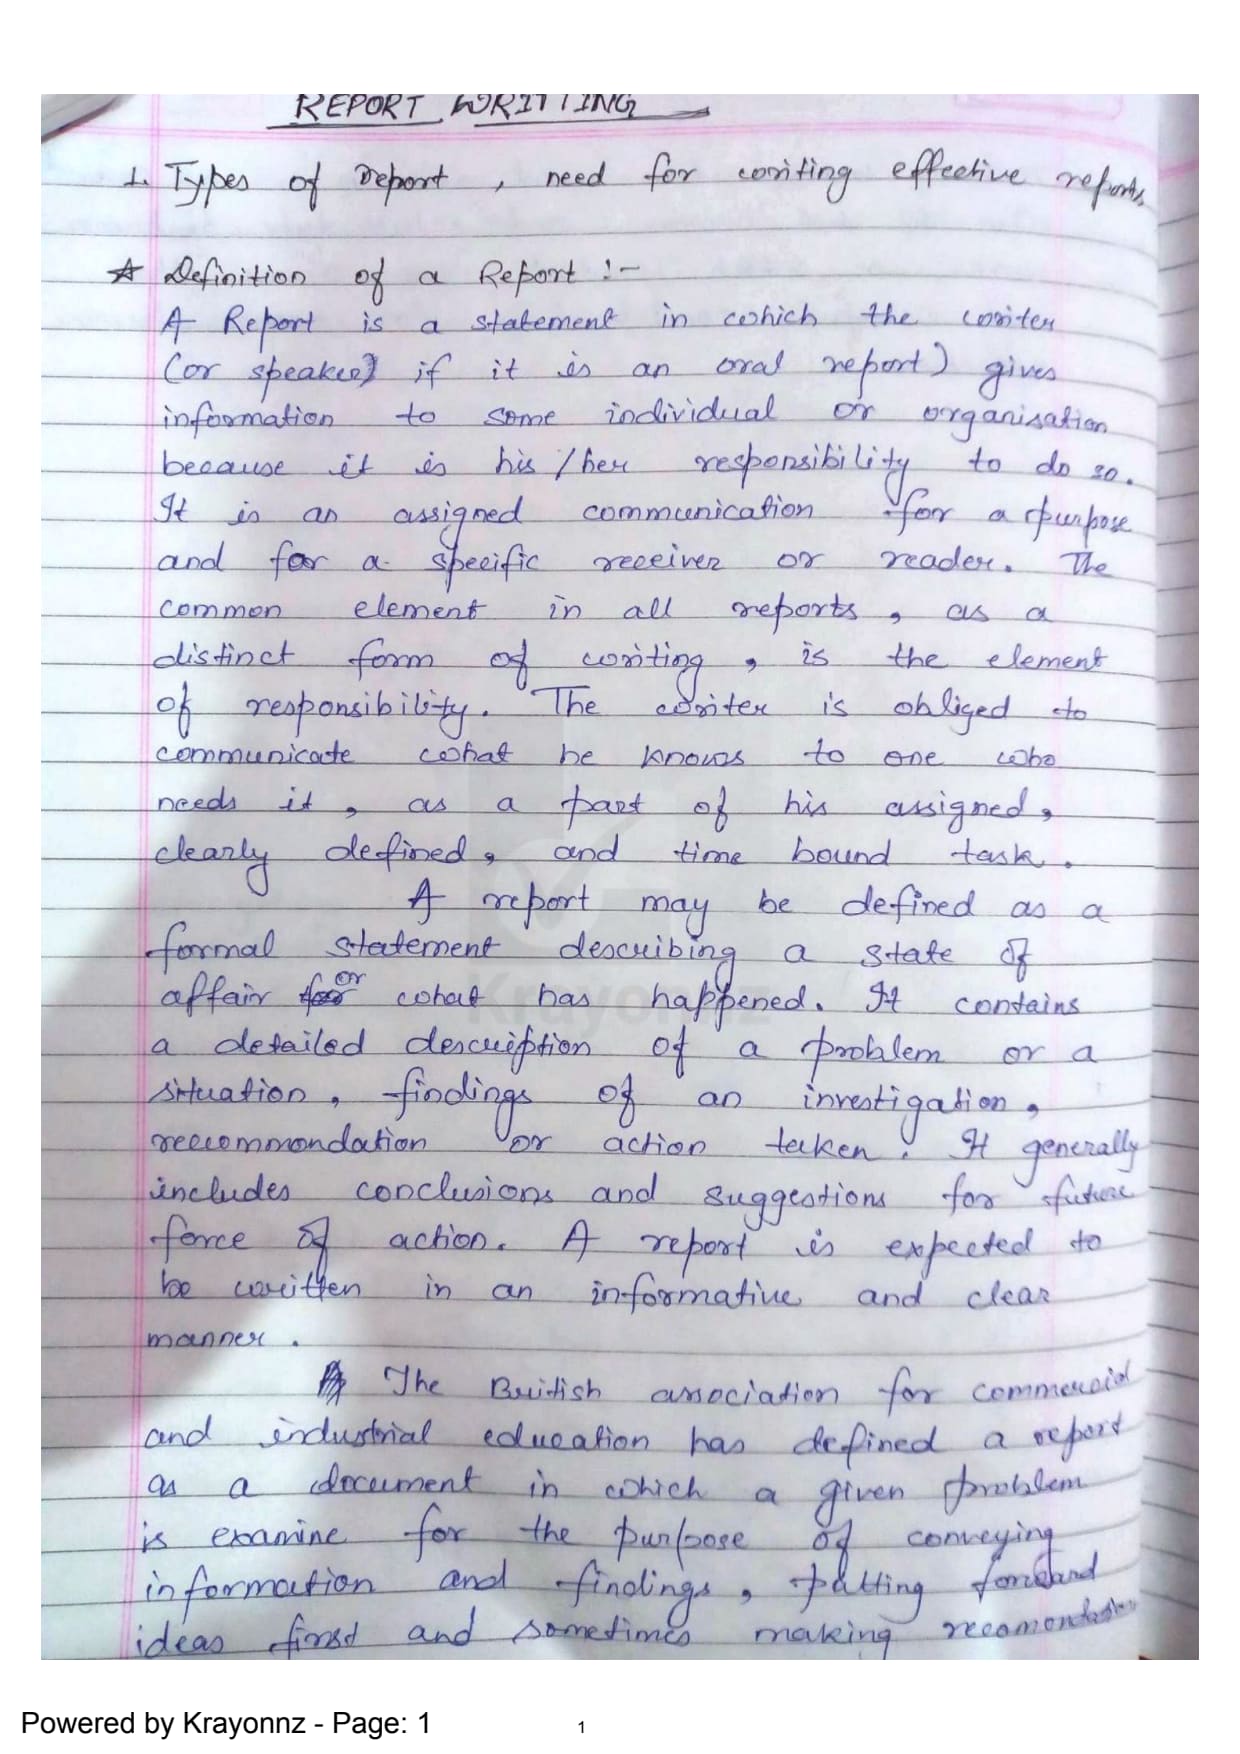 REPORT WRITTING
1. Types of report, need for writing effective reports
☆ Definition of a Report :-
A Report is a statement in which the writer
(or speaker) if it is an oral report) gives
information to some individual or organisation
because it is his/her responsibility to do so.
It is an assigned communication for a purpose
and for a specific receiver or reader. The
common element in all reports, as a
distinct form of writing, is the element
of responsibility. The writer is obliged to
communicate what he knows to one who
needs it, as a part of his assigned,
clearly defined, and time bound task.
A report may be defined as a
formal statement describing a state of
affair or what has happened. It contains
a detailed description of a problem or a
situation, findings of an investigation,
reccommondation or action taken. It generally
includes conclusions and suggestions for future
force of action. A report is expected to
be written in an informative and clear
manner.
The British association for commercial
and industrial education has defined a report
as a document in which a given problem
is examine for the purpose of conveying
information and findings, putting forward
ideas first and sometimes making recomendation
Krayonnz
Powered by Krayonnz - Page: 1
1